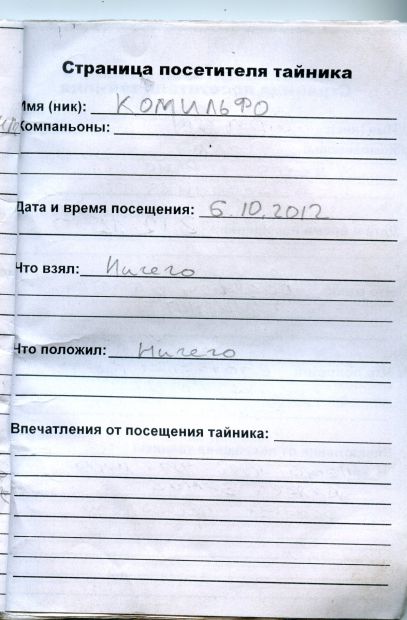 Страница посетителя тайника
Имя (ник): КОМИЛЬФО
Компаньоны:
Дата и время посещения: 6.10.2012
Что взял: Ничего
Что положил: Ничего
Впечатления от посещения тайника: